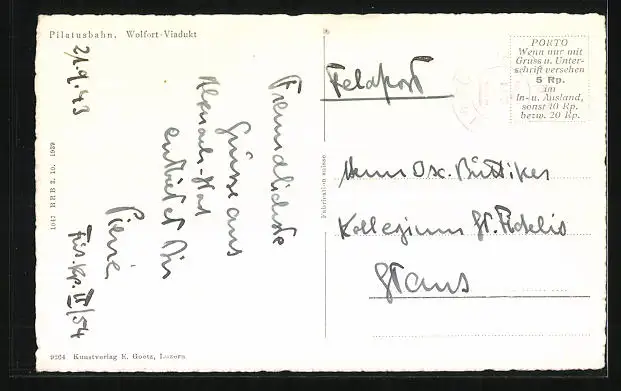 Pilatusbahn, Wolfort-Viadukt
21.9.43
Freundlichste
Grüsse aus
entbietet Dir
Pierre
Füs. Kp. II/54
1047 BRB 3. 10. 1939
9264 Kunstverlag E. Goetz, Luzern
Fabrication suisse
Feldpost
PORTO
Wenn nur mit
Gruss u. Unter-
schrift versehen
5 Rp.
im
In- u. Ausland,
sonst 10 Rp.
bezw. 20 Rp.
Herrn Osc. Büttiker
Kollegium St. Fidelis
Stans